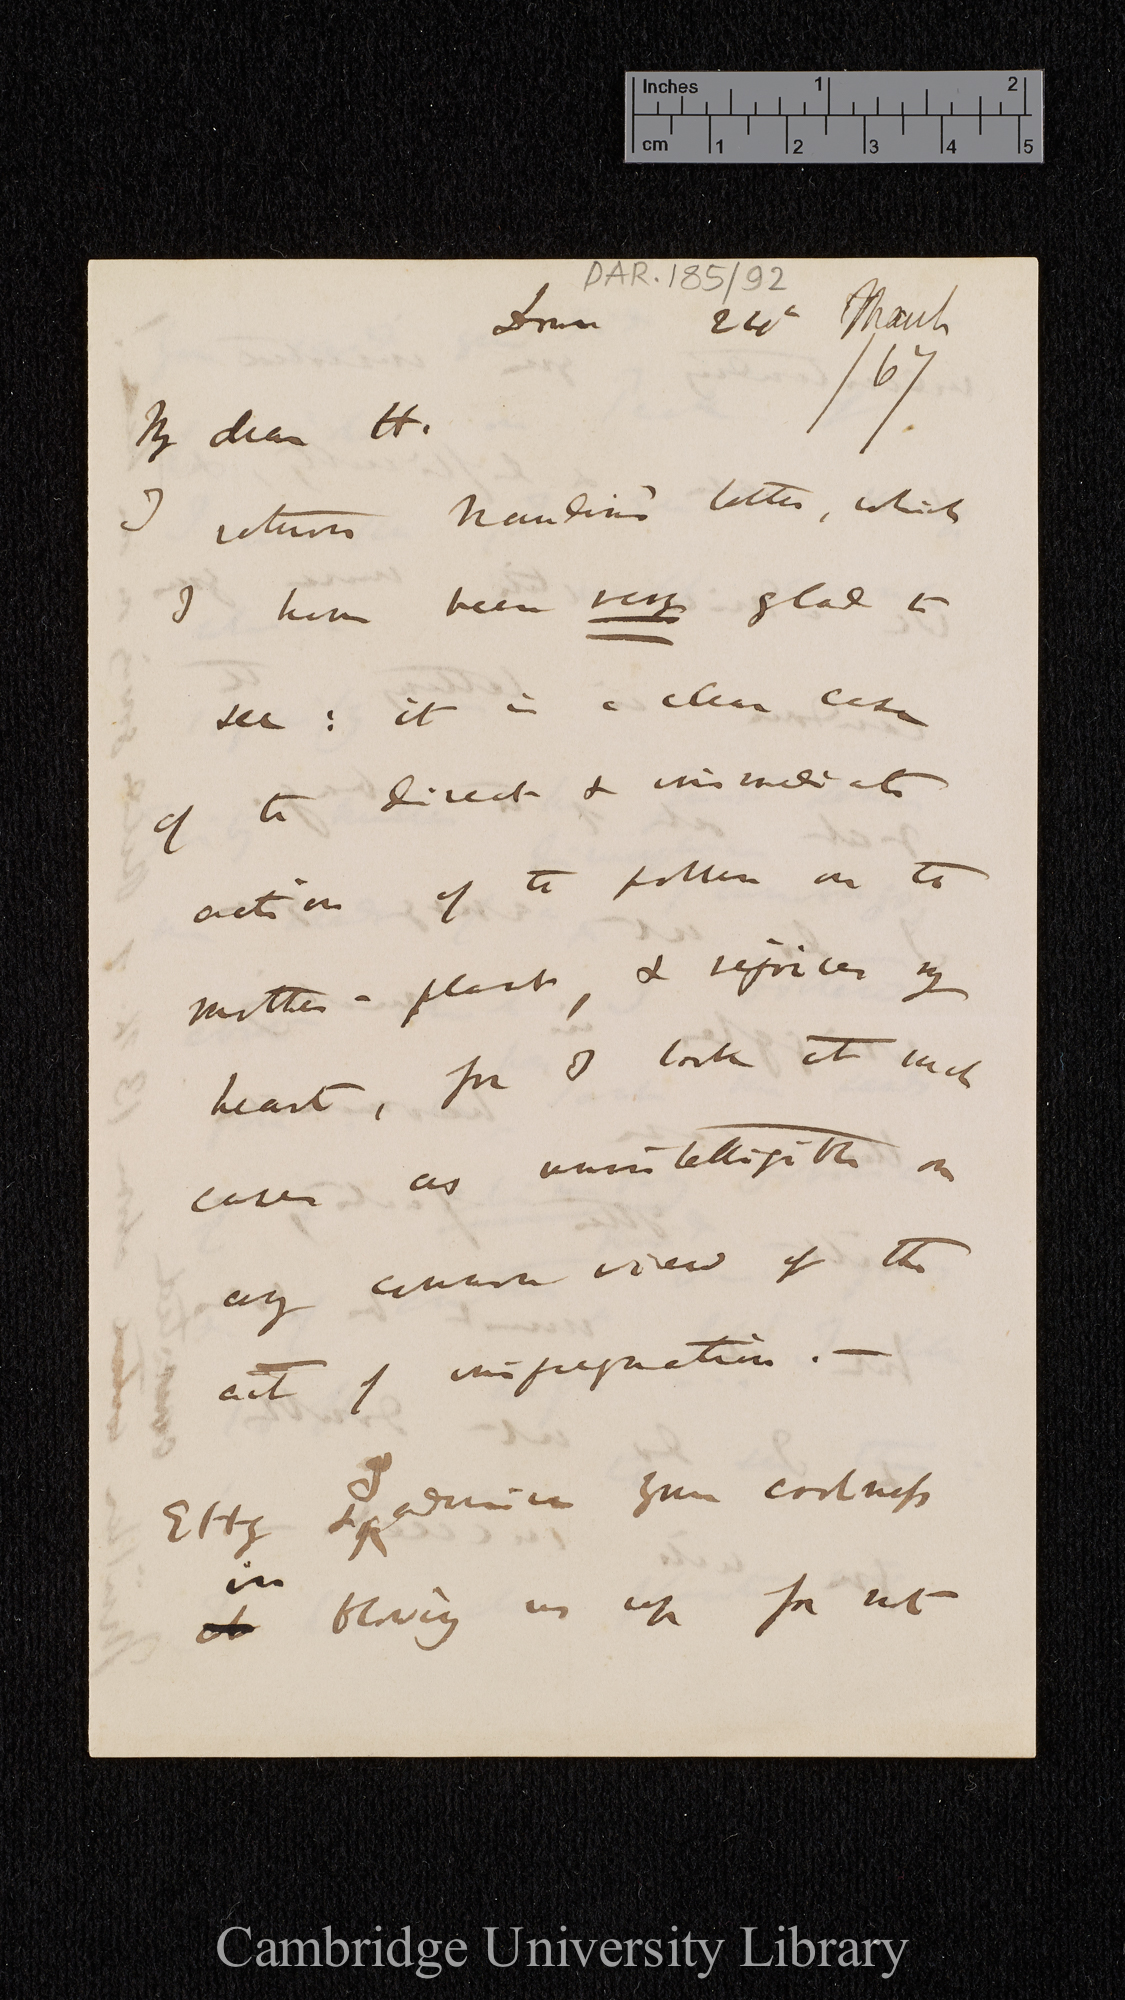 Inches 1 2
cm 1 2 3 4 5
DAR. 185/92
Down 24th March
/67
My dear H.
I return Naudin's letter, which
I have been very glad to
see: it is a clear case
of the direct & immediate
action of the pollen on the
mother-plant, & rejoices my
heart, for I look at such
cases as unintelligible on
any common view of the
act of impregnation.—
Etty & I admire your coolness
in
blowing us up for not
Cambridge University Library